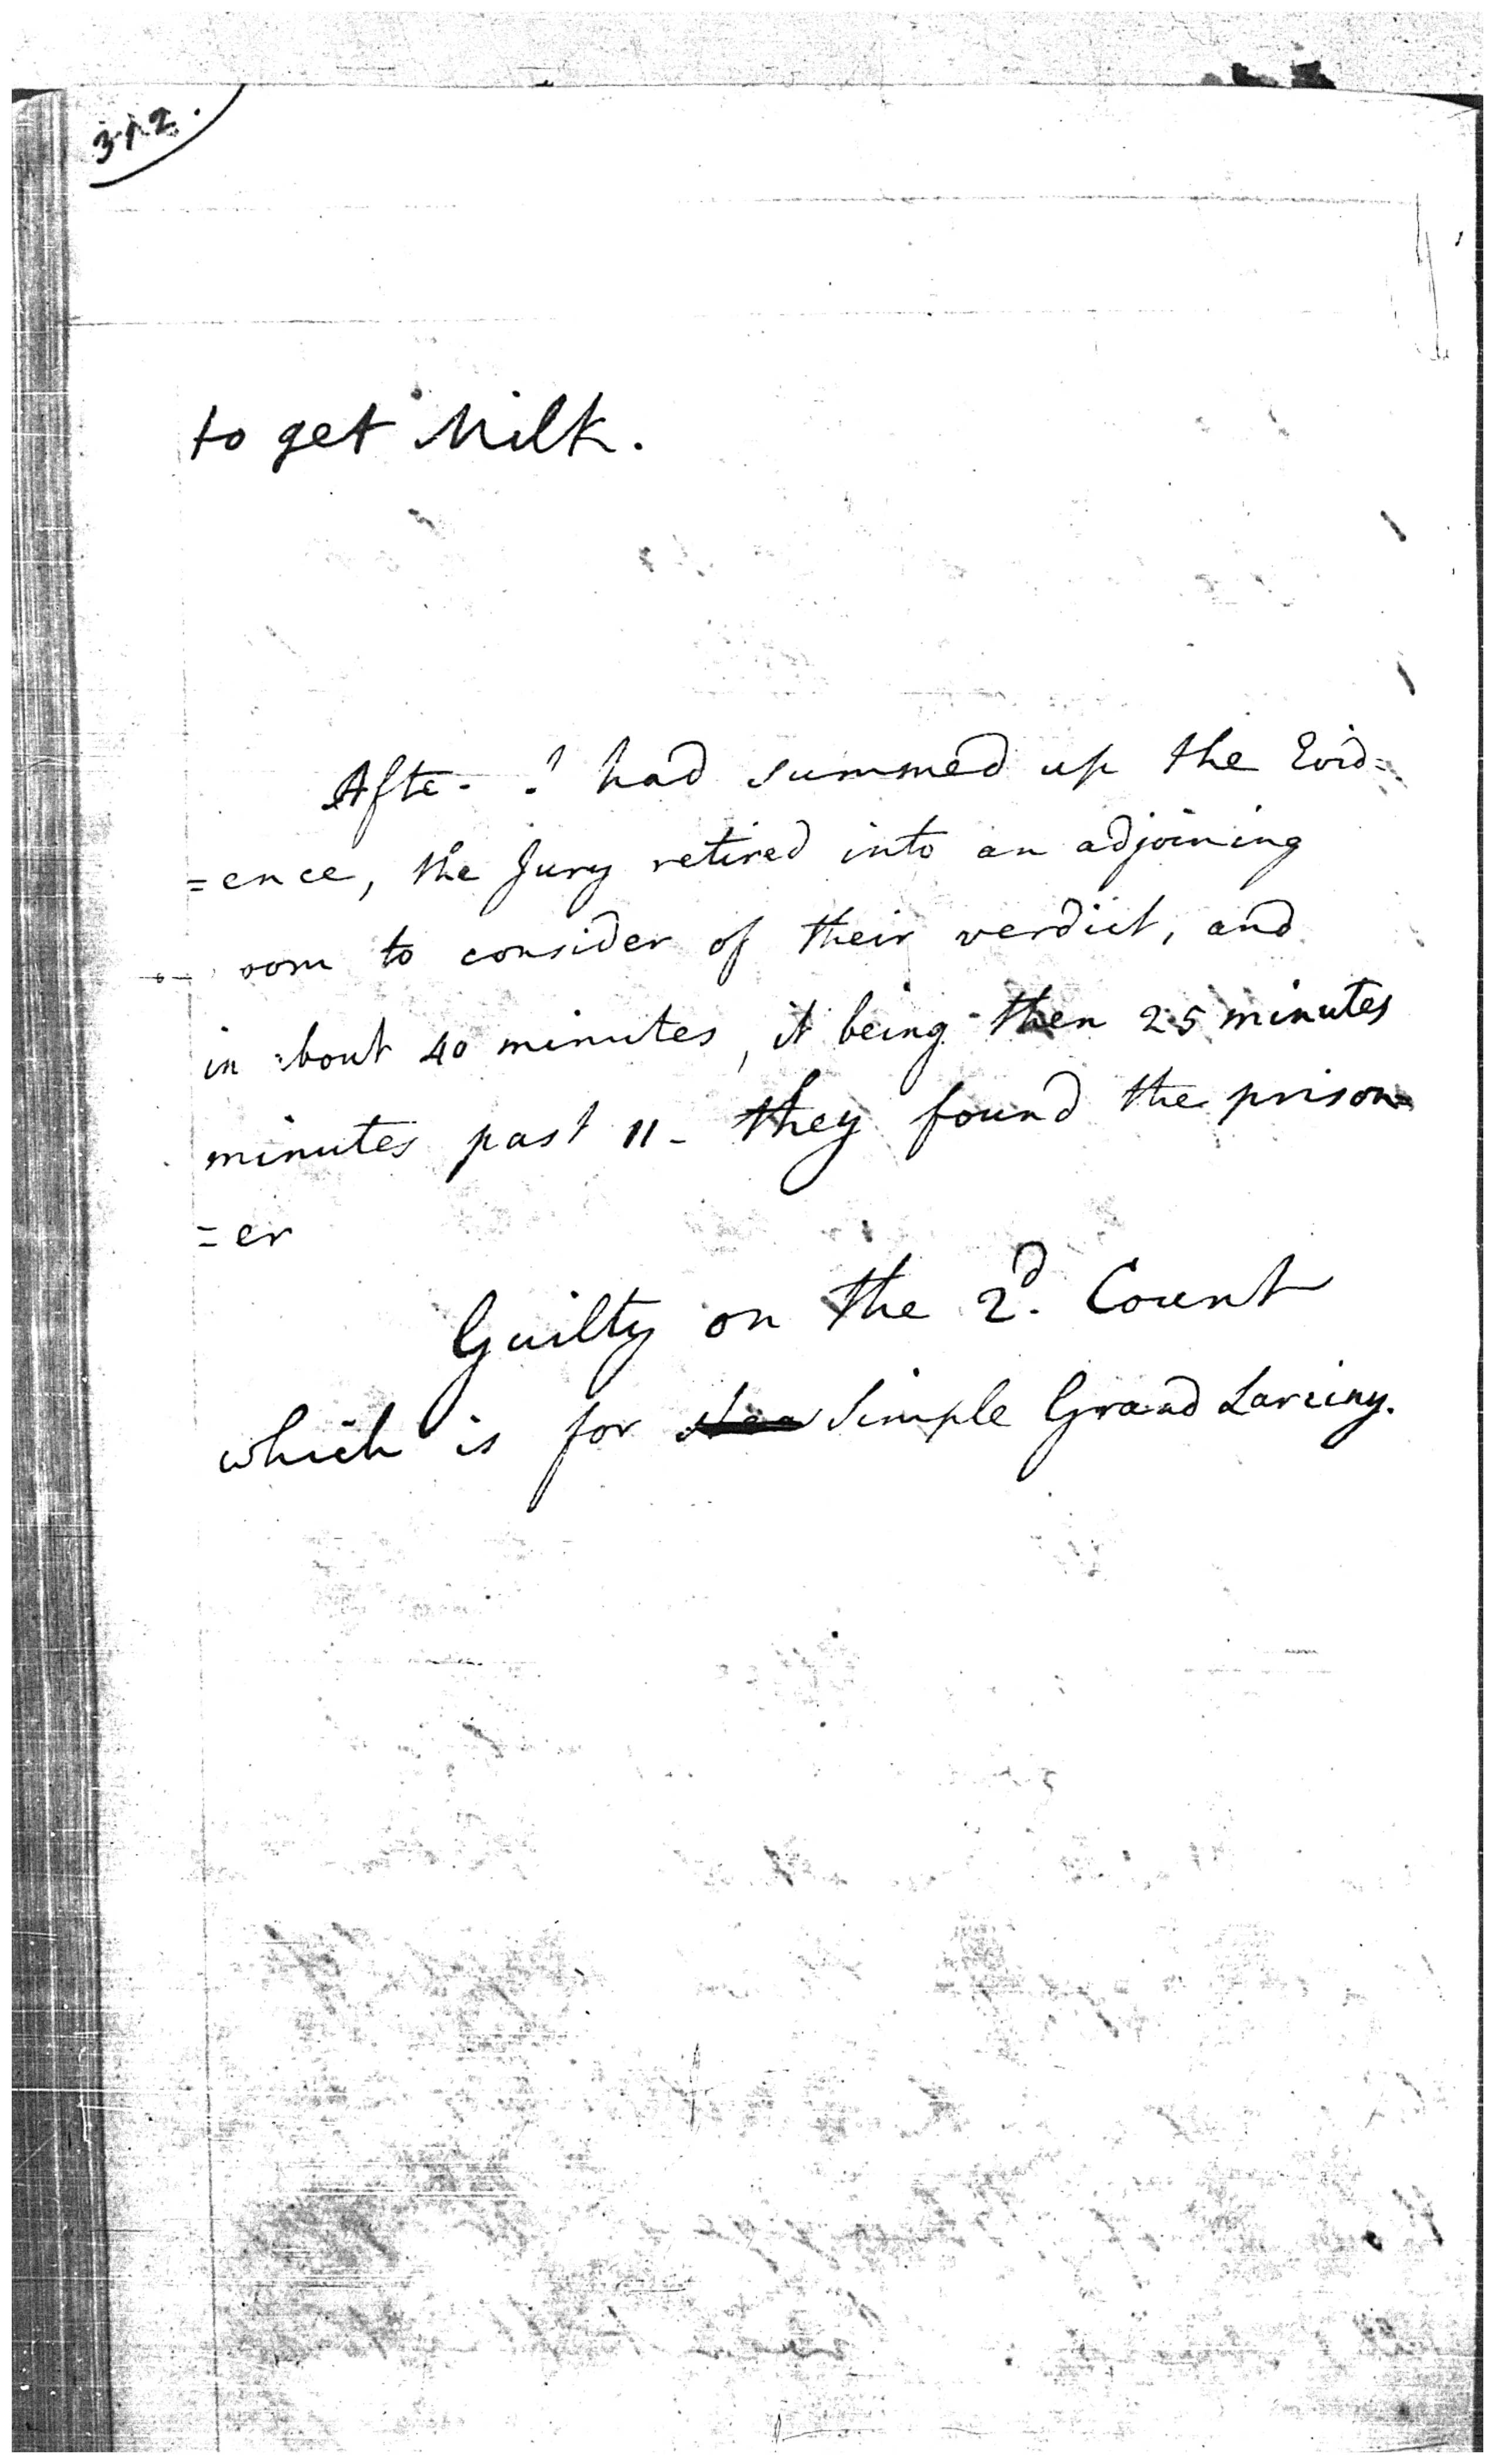 312.
to get Milk.
After I had summed up the Evid=
=ence, the Jury retired into an adjoining
room to consider of their verdict, and
in about 40 minutes, it being then 25 minutes
minutes past 11 - they found the prison=
=er
Guilty on the 2d. Count
which is for Simple Grand Larciny.